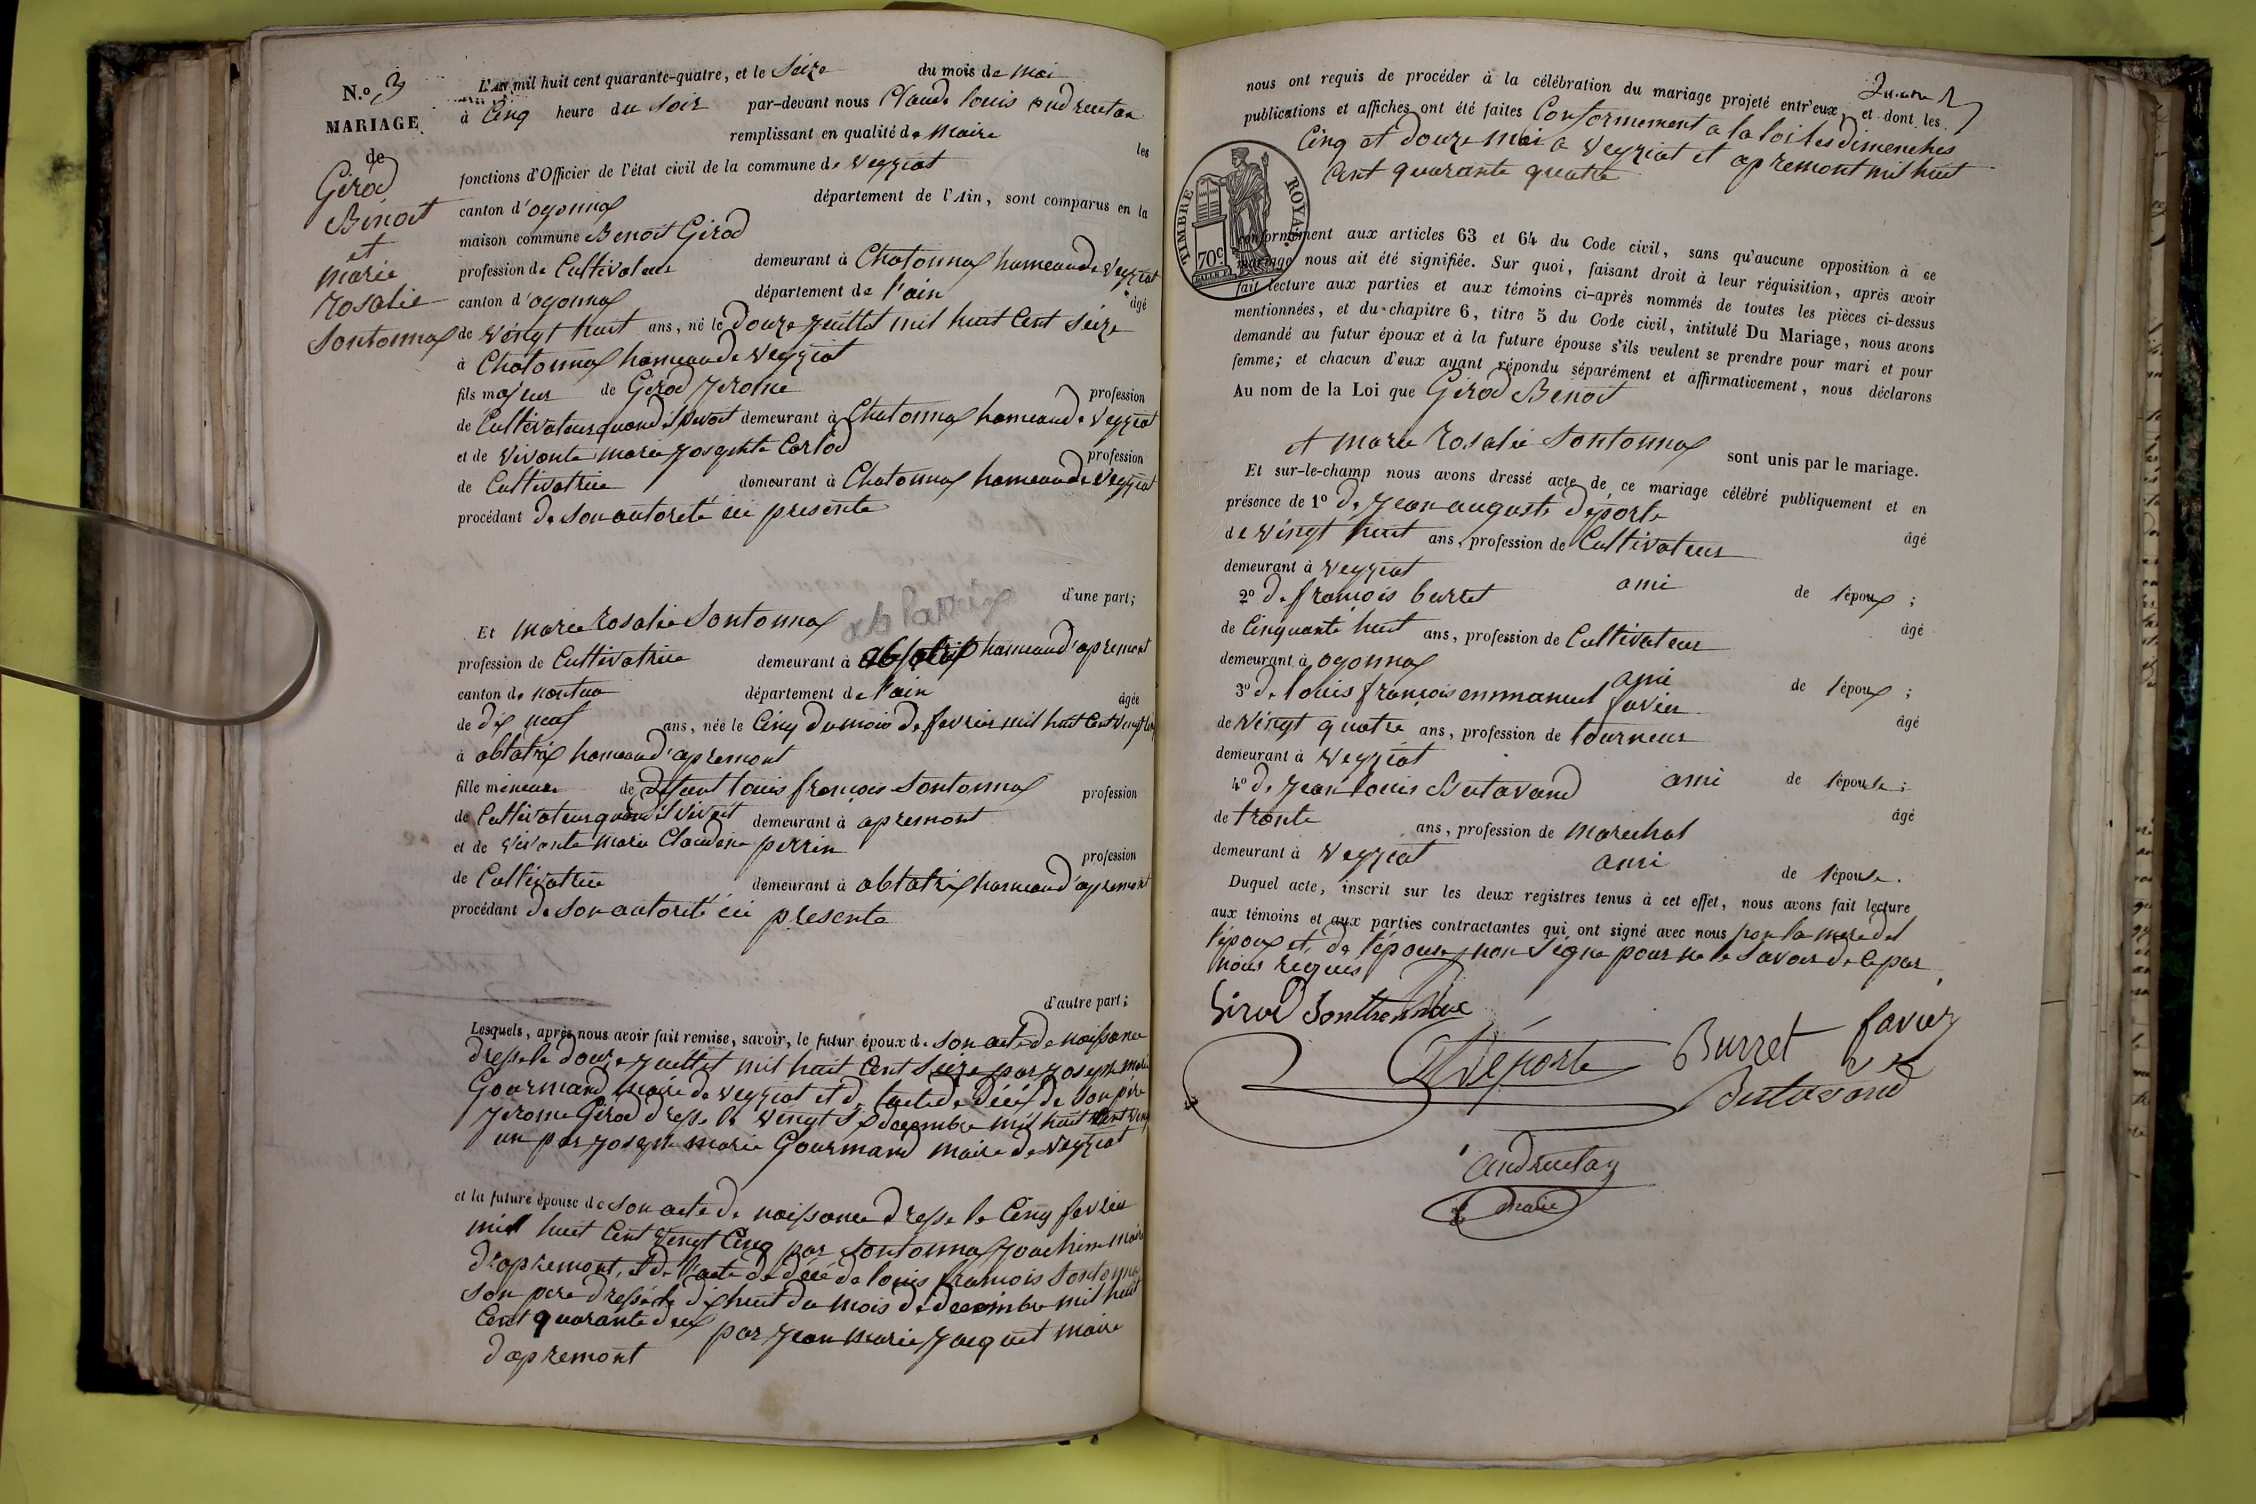 N.o 3
MARIAGE
de
Girod
Benoit
et
marie
rosalie
Sontonnax
L'AN mil huit cent quarante-quatre, et le Seize du mois de mai
à Cinq heure du Soir par-devant nous Claude louis andruetan
remplissant en qualité de Maire les
fonctions d'Officier de l'état civil de la commune de Veyziat
canton d'oyonnax département de l'Ain, sont comparus en la
maison commune Benoit Girod
profession de Cultivateur demeurant à Chatonnax hameau de Veyziat
canton d'oyonnax département de l'ain âgé
de vingt huit ans, né le Douze juillet mil huit Cent Seize
à Chatonnax hameau de Veyziat
fils majeur de Girod Jerome profession
de Cultivateur quand il vivoit demeurant à Chatonnax hameau de Veyziat
et de vivante marie josephte Carlod profession
de Cultivatrice demeurant à Chatonnax hameau de Veyziat
procédant de son autorité ici presente
d'une part;
Et marie rosalie Sontonnax ablatrix
profession de Cultivatrice demeurant à hameau d'apremont
canton de nantua département de l'ain âgée
de dix neuf ans, née le Cinq du mois de fevrier mil huit Cent vingt Cinq
à ablatrix hameau d'apremont
fille mineure de Défunt louis françois Sontonnax profession
de Cultivateur quand il vivoit demeurant à apremont
et de vivante marie Claudine perrin profession
de Cultivatrice demeurant à ablatrix hameau d'apremont
procédant de son autorité ici presente
d'autre part;
Lesquels, après nous avoir fait remise, savoir, le futur époux de son acte de naissance
dressé le douze juillet mil huit Cent Seize par joseph marie
Gourmand Maire de Veyziat et de l'acte de Décé de Son père
Jerome Girod dressé le vingt Six decembre mil huit Cent vingt
un par joseph marie Gourmand Maire de Veyziat
et la future épouse de son acte de naissance dresse le Cinq fevrier
mil huit Cent vingt Cinq par Sontonnax Joachim Maire
d'apremont, et de l'acte de décé de louis françois Sontonnax
son pere dressé le dixhuit du mois de decembre mil huit
Cent quarante deux par jean marie Jacquet maire
d'apremont
nous ont requis de procéder à la célébration du mariage projeté entr'eux, et dont les
publications et affiches ont été faites Conformement a la loi les Dimenches
Cinq et Douze Mai a Veyziat et apremont mil huit
Cent quarante quatre
TIMBRE ROYAL
70c
conformément aux articles 63 et 64 du Code civil, sans qu'aucune opposition à ce
mariage nous ait été signifiée. Sur quoi, faisant droit à leur réquisition, après avoir
fait lecture aux parties et aux témoins ci-après nommés de toutes les pièces ci-dessus
mentionnées, et du chapitre 6, titre 5 du Code civil, intitulé Du Mariage, nous avons
demandé au futur époux et à la future épouse s'ils veulent se prendre pour mari et pour
femme; et chacun d'eux ayant répondu séparément et affirmativement, nous déclarons
Au nom de la Loi que Girod Benoit
et marie rosalie Sontonnax sont unis par le mariage.
Et sur-le-champ nous avons dressé acte de ce mariage célébré publiquement et en
présence de 1o de jean auguste déporte
de vingt huit ans, profession de Cultivateur âgé
demeurant à Veyziat ami de l'époux;
2o de françois burret
de Cinquante huit ans, profession de Cultivateur âgé
demeurant à oyonnax ami de l'époux;
3o de louis françois emmanuel favier
de vingt quatre ans, profession de tourneur âgé
demeurant à Veyziat ami de l'épouse;
4o de jean louis Bertavand
de trente ans, profession de marechal âgé
demeurant à Veyziat ami de l'épouse.
Duquel acte, inscrit sur les deux registres tenus à cet effet, nous avons fait lecture
aux témoins et aux parties contractantes qui ont signé avec nous non la mere de
l'époux et de l'épouse non Signe pour ne le Savoir de ce par
nous requis
Girod Sonthonnax
Déporte Burret favier
Bertavand
andruetan
maire